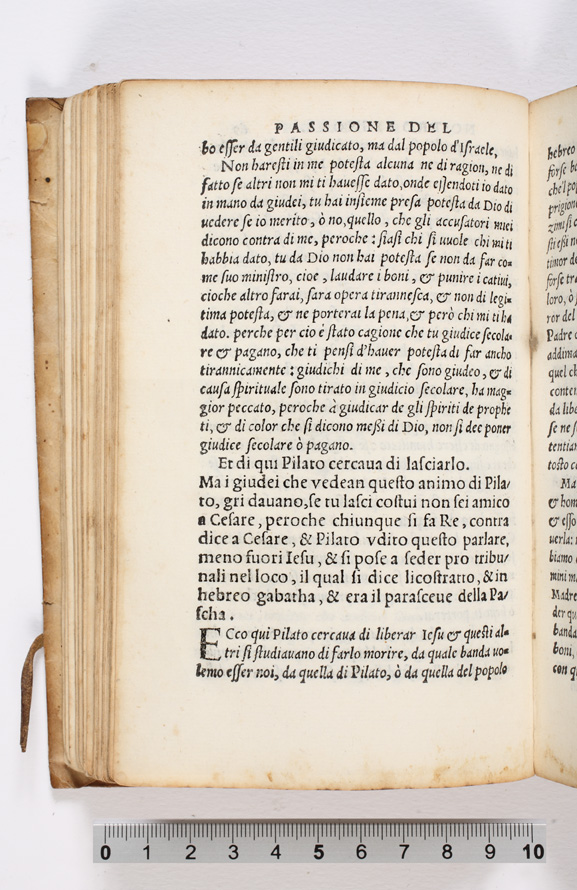 PASSIONE DEL
bo eſſer da gentili giudicato, ma dal popolo d'Iſraele,
Non hareſti in me poteſta alcuna ne di ragion, ne di
fatto ſe altri non mi ti haueſſe dato, onde eſſendoti io dato
in mano da giudei, tu hai inſieme preſa poteſta da Dio di
uedere ſe io merito, ò no, quello, che gli accuſatori miei
dicono contra di me, peroche : ſiaſi chi ſi uuole chi mi ti
habbia dato, tu da Dio non hai poteſta ſe non da far co=
me ſuo miniſtro, cioe, laudare i boni, & punire i catiui,
cioche altro farai, ſara opera tiranneſca, & non di legi=
tima poteſta, & ne porterai la pena, & però chi mi ti ha
dato. perche per cio e ſtato cagione che tu giudice ſecola=
re & pagano, che ti penſi d'hauer poteſta di far ancho
tirannicamente : giudichi di me, che ſono giudeo, & di
cauſa ſpirituale ſono tirato in giudicio ſecolare, ha mag=
gior peccato, peroche à giudicar de gli ſpiriti de prophe
ti, & di color che ſi dicono meßi di Dio, non ſi dee poner
giudice ſecolare ò pagano.
Et di qui Pilato cercaua di laſciarlo.
Ma i giudei che vedean queſto animo di Pila/
to, gri dauano, ſe tu laſci coſtui non ſei amico
a Ceſare, peroche chiunque ſi fa Re, contra
dice a Ceſare, & Pilato vdito queſto parlare,
meno fuori Ieſu, & ſi poſe a ſeder pro tribu/
nali nel loco, il qual ſi dice licoſtratto, & in
hebreo gabatha, & era il paraſceue della Pa/
ſcha.
ECco qui Pilato cercaua di liberar Ieſu & queſti al=
tri ſi ſtudiauano di farlo morire, da quale banda uo=
lemo eſſer noi, da quella di Pilato, ò da quella del popolo
hebreo
Padre
quel
Ma
Madre
banda
boni,
0 1 2 3 4 5 6 7 8 9 10